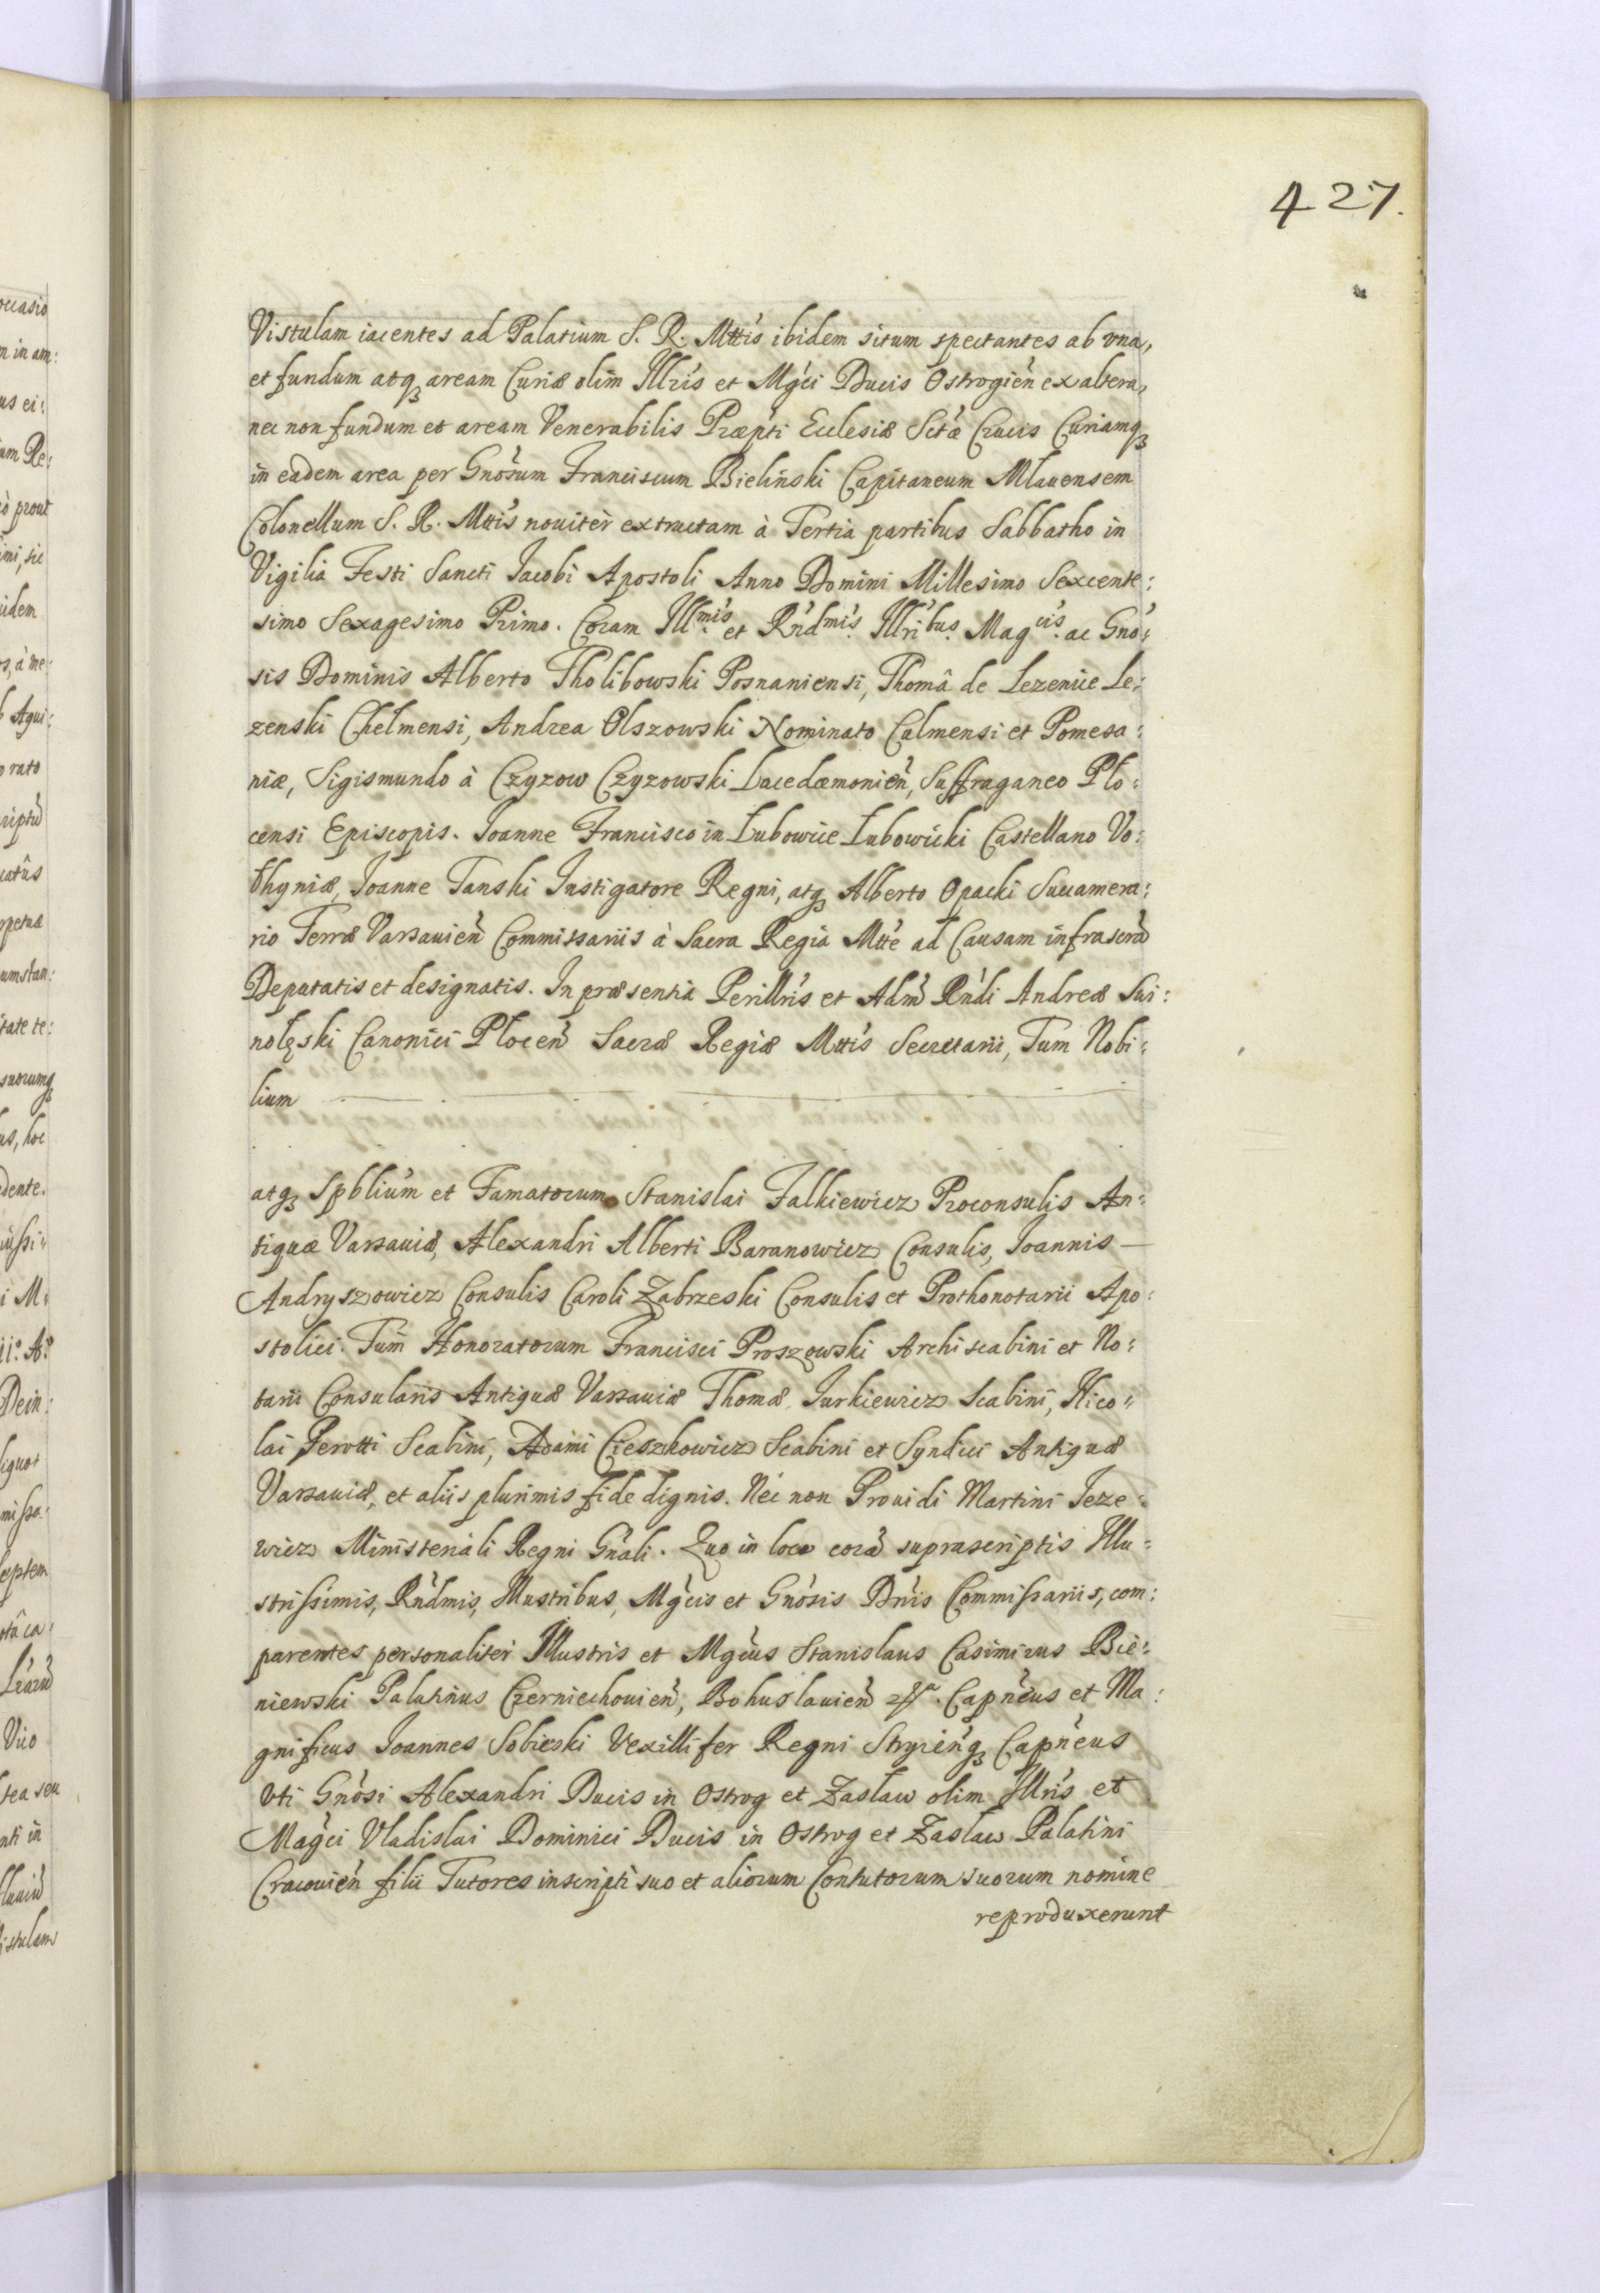 427.
Vistulam iacentes ad Palatium S. R. Mttis ibidem situm spectantes ab vna,
et fundum atq₃ aream Curiæ olim Illris et Mgci Ducis Ostrogien̄ ex altera,
nec non fundum et aream Venerabilis Præpti Ecclesiæ Sctæ Crucis Curiamq₃
in eadem area per Gnosum Franciscum Bielinski Capitaneum Mlauensem
Colonellum S. R. Mttis nouitèr extructam à Tertia partibus Sabbatho in
Vigilia Festi Sancti Iacobi Apostoli Anno Domini Millesimo Sexcente:
simo Sexagesimo Primo. Coram Illmis. et Rndmis. Illribus. Magcis. ac Gno:
sis Dominis Alberto Tholibowski Posnaniensi, Thomâ de Lezenice Le:
zenski Chelmensi, Andrea Olszowski Nominato Culmensi et Pomesa:
niæ, Sigismundo à Czyzow Czyzowski Lacedæmonien̄, Suffraganeo Plo:
censi Episcopis. Ioanne Francisco in Łubowice Łubowicki Castellano Vo:
lhyniæ, Ioanne Tanski Instigatore Regni, atq₃ Alberto Opacki Succamera:
rio Terræ Varsauien̄ Commissariis à Sacra Regia Mtte ad Causam infrascrād
Deputatis et designatis. In præsentia Perillris et Adm̄ Rndi Andreæ Swi:
nolęski Canonici Płocen̄ Sacræ Regiæ Mttis Secretarii, Tum Nobi:
lium
atq₃ Spblium et Famatorum Stanislai Falkiewicz Proconsulis An:
tiquæ Varsauiæ, Alexandri Alberti Baranowicz Consulis, Ioannis —
Andryszowicz Consulis Caroli Zabrzeski Consulis et Prothonotarii Apo:
stolici. Tum Honoratorum Francisci Proszowski Archiscabini et No:
tarii Consularis Antiquæ Varsauiæ Thomæ Iurkiewicz Scabini, Nico:
lai Perotti Scabini, Adami Cieszkowicz Scabini et Syndici Antiquæ
Varsauiæ, et aliis plurimis fide dignis. Nec non Prouidi Martini Ieze:
wicz Ministeriali Regni Gnali. Quo in loco corā suprascriptis Illu:
strissimis, Rndmis, Illustribus, Mgcis et Gnosis Dnis Commissariis, com:
parentes personaliter Illustris et Mgcus Stanislaus Casimirus Bie:
niewski Palatinus Czerniechouien̄, Bohuslauien̄ Capneus et Ma:
gnificus Ioannes Sobieski Vexillifer Regni Stryienq₃ Capneus
vti Gnosi Alexandri Ducis in Ostrog et Zasław olim Illris et
Magci Vladislai Dominici Ducis in Ostrog et Zasław Palatini
Cracouien̄ filii Tutores inscripti suo et aliorum Contutorum suorum nomine
reproduxerunt